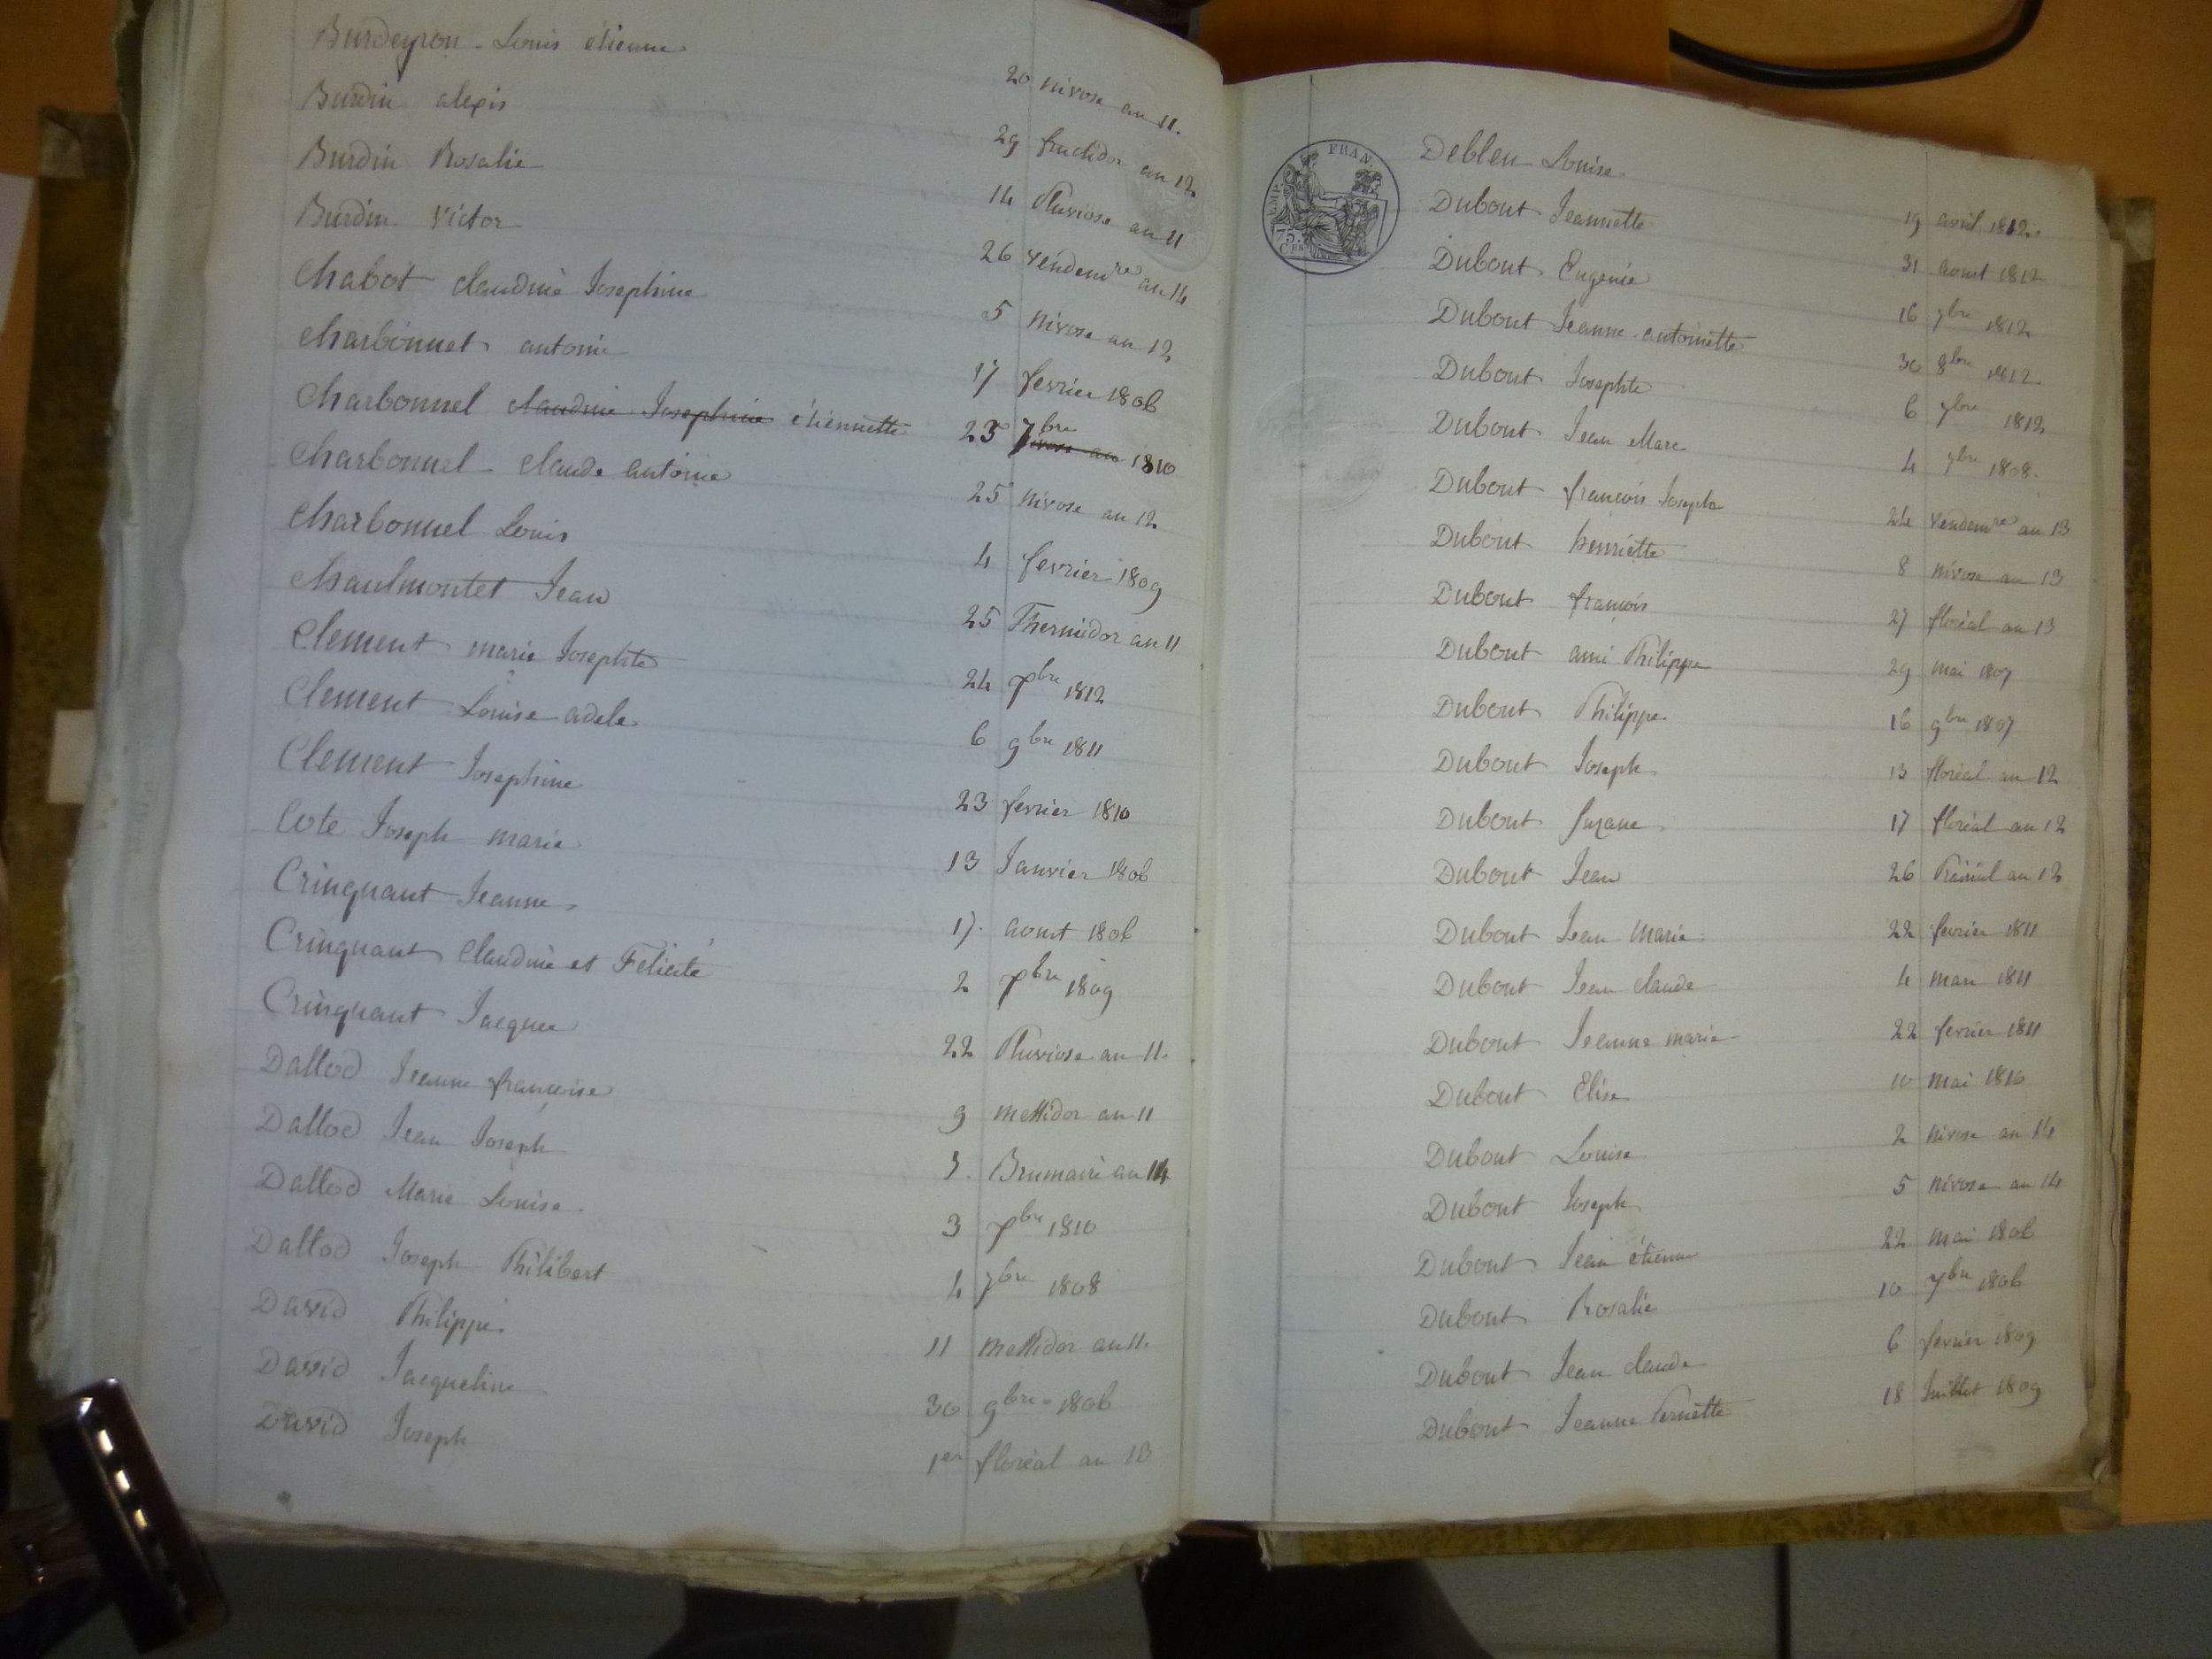 Burdeyron Louis étienne 20 nivose an 11.
Burdin alexis 29 fructidor an 12
Burdin Rosalie 14 Pluviose an 11
Burdin Victor 26 vendemre an 14
Chabot claudine Josephine 5 nivose an 12
Charbonnet antoine 17 fevrier 1806
Charbonnel claudine Josephine étiennette 23 7bre 1810
Charbonnel claude antoine 25 nivose an 12
Charbonnel Louis 4 fevrier 1809
Chaulmontet Jean 25 Thermidor an 11
Clement marie Josephte 24 Xbre 1812
Clement Louise adele 6 9bre 1811
Clement Josephine 23 fevrier 1810
Cote Joseph marie 13 Janvier 1806
Crinquant Jeanne 17. aoust 1806
Crinquant Claudine et Felicité 2 Xbre 1809
Crinquant Jacques 22 Pluviose an 11.
Dallod Jeanne françoise 9 messidor an 11
Dallod Jean Joseph 3. Brumaire an 14
Dallod Marie Louise 3 Xbre 1810
Dallod Joseph Philibert 4 7bre 1808
David Philippe 11 messidor an 11.
David Jacqueline 30 9bre 1806
David Joseph 1er floréal an 13
FRAN.
TEMP.
75.
Ces
Debleu Louise 19 avril 1812.
Dubout Jeannette 31 aoust 1812
Dubout Eugenie 16 7bre 1812
Dubout Jeanne antoinette 30 8bre 1812.
Dubout Josephte 6 7bre 1812
Dubout Jean Marc 4 7bre 1808.
Dubout françois Joseph 24 vendemre an 13
Dubout henriette 8 nivose an 13
Dubout françois 27 floréal an 13
Dubout ami Philippe 29 mai 1807
Dubout Philippe 16 9bre 1807
Dubout Joseph 13 floréal an 12
Dubout Suzane 17 floréal an 12
Dubout Jean 26 Prairial an 12
Dubout Jean Marie 22 fevrier 1811
Dubout Jean claude 4 mars 1811
Dubout Jeanne marie 22 fevrier 1811
Dubout Elise 10 mai 1810
Dubout Louise 2 nivose an 14
Dubout Joseph 5 nivose an 14
Dubout Jean étienne 22 mai 1806
Dubout Rosalie 10 7bre 1806
Dubout Jean claude 6 fevrier 1809
Dubout Jeanne Pernette 18 Juillet 1809